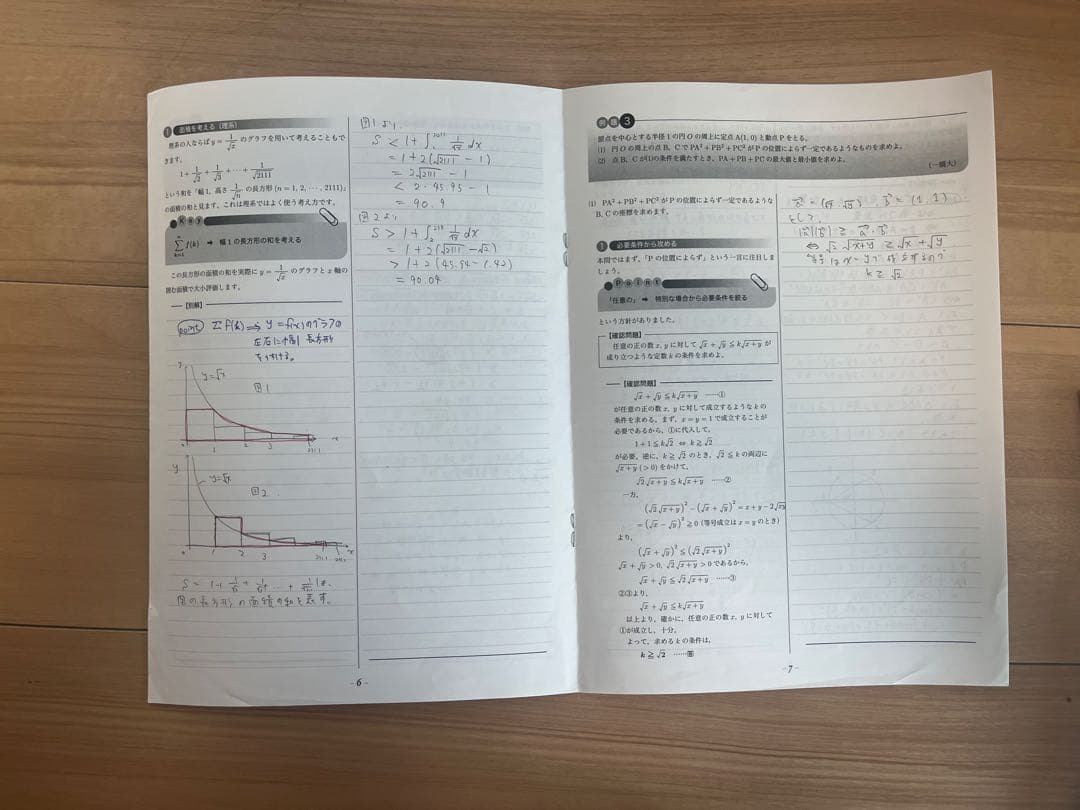 1 面積を考える（理系）
理系の人ならば y = 1/√x のグラフを用いて考えることもで
きます。
1 + 1/√2 + 1/√3 + ⋯ + 1/√2111
という和を「幅1、高さ 1/√n の長方形 (n = 1, 2, ⋯, 2111)」
の面積の和と見ます。これは理系ではよく使う考え方です。
Key
∑f(k) ➡ 幅1の長方形の和を考える
この長方形の面積の和を実際に y = 1/√x のグラフと x 軸の
囲む面積で大小評価します。
【別解】
point Σf(k) ⇒ y = f(x)のグラフの
左右に幅1 長方形
y
y=√x
図1
0 1 2 3 2111 x
y
y=√x
図2
0 1 2 3 x
S = 1 + 1/√2 + 1/√3 + ⋯ + 1/√2111 は、
図の長方形の面積の和を表す。
図1より、
S < 1 + ∫₁²¹¹¹ 1/√x dx
= 1 + 2(√2111 − 1)
= 2√2111 − 1
< 2・45.95 − 1
= 90.9
図2より
S > 1 + ∫₂²¹¹¹ 1/√x dx
= 1 + 2(√2111 − √2)
> 1 + 2(45.94 − 1.42)
= 90.04
- 6 -
例題3
原点を中心とする半径1の円Oの周上に定点A(1, 0)と動点Pをとる。
(1) 円Oの周上の点B, Cで PA² + PB² + PC² がPの位置によらず一定であるようなものを求めよ。
(2) 点B, Cが(1)の条件を満たすとき、PA + PB + PCの最大値と最小値を求めよ。
（一橋大）
(1) PA² + PB² + PC² がPの位置によらず一定であるような
B, Cの座標を求めます。
1 必要条件から攻める
本問ではまず、「Pの位置によらず」という一言に注目しま
しょう。
Point
「任意の」➡ 特別な場合から必要条件を絞る
という方針がありました。
【確認問題】
任意の正の数 x, y に対して √x + √y ≦ k√x+y が
成り立つような定数 k の条件を求めよ。
【確認問題】
√x + √y ≦ k√x+y ……①
が任意の正の数 x, y に対して成立するような k の
条件を求める。まず、x = y = 1 で成立することが
必要であるから、①に代入して、
1 + 1 ≦ k√2 ⇔ k ≧ √2
が必要。逆に、k ≧ √2 のとき、√2 ≦ k の両辺に
√x+y (> 0) をかけて、
√2√x+y ≦ k√x+y ……②
一方、
(√2√x+y)² − (√x + √y)² = x + y − 2√xy
= (√x − √y)² ≧ 0 (等号成立は x = y のとき)
より、
(√x + √y)² ≦ (√2√x+y)²
√x + √y > 0, √2√x+y > 0 であるから、
√x + √y ≦ √2√x+y ……③
②③より、
√x + √y ≦ k√x+y
以上より、確かに、任意の正の数 x, y に対して
①が成立し、十分。
よって、求める k の条件は、
k ≧ √2 ……答
a = (√x, √y) b = (1, 1)
として、
|a||b| ≧ a・b
⇔ √2 √x+y ≧ √x + √y
等号は x = y で成立するので
k ≧ √2
- 7 -